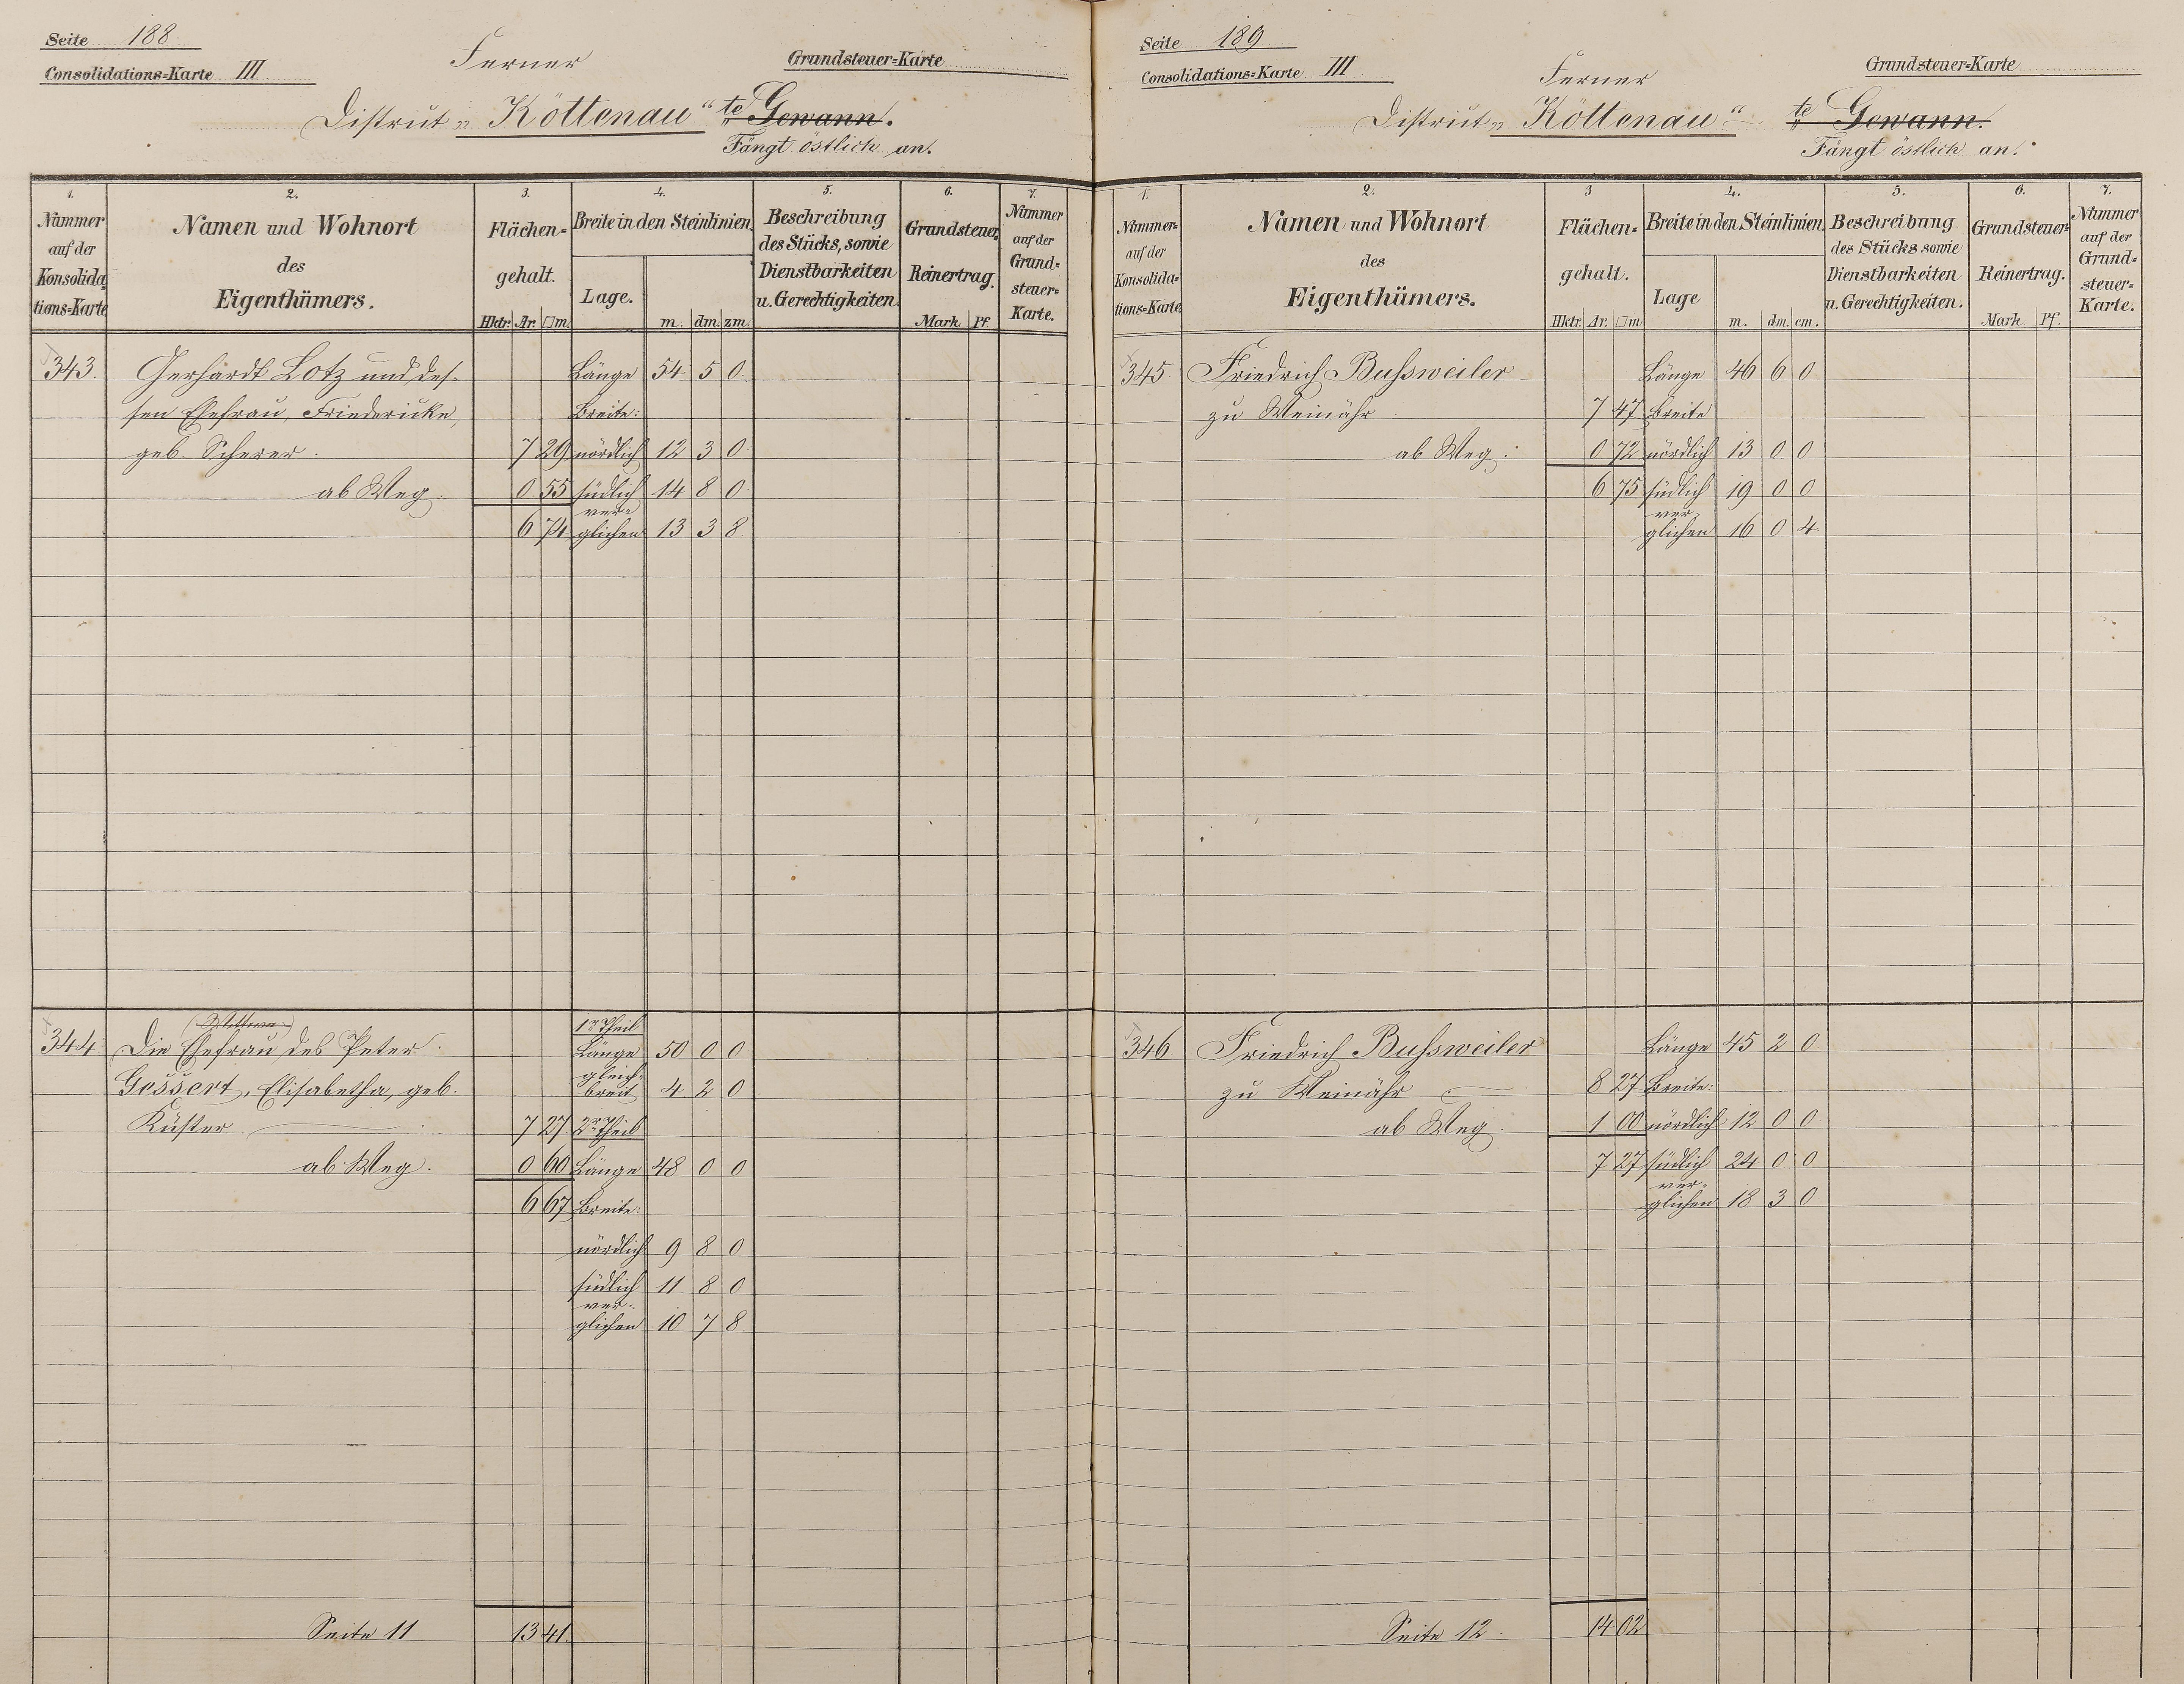 Seite 188
Consolidations=Karte III
Ferner
Grundsteuer=Karte
District „Köttenau“ te Gewann.
Fängt östlich an.
1. 2. 3. 4. 5. 6. 7.
Nummer auf der Konsolida tions=Karte
Namen und Wohnort des Eigenthümers.
Flächen= gehalt.
Hktr. Ar. □m.
Breite in den Steinlinien.
Lage. m. dm. zm.
Beschreibung des Stücks, sowie Dienstbarkeiten u. Gerechtigkeiten.
Grundsteuer Reinertrag.
Mark Pf.
Nummer auf der Grund= steuer= Karte.
343. Gerhardt Lotz und des- Länge 54 5 0
sen Ehefrau, Friedericke, Breite:
geb. Scherer. 7 29 nördlich 12 3 0
ab Weg. 0 55 südlich 14 8 0
6 74 ver= glichen 13 3 8
1r. Theil
344 Die Ehefrau des Peter Länge 50 0 0
Gossert, Elisabetha, geb. gleich= breit 4 2 0
Küster 7 27 2r. Theil
ab Weg. 0 60 Länge 48 0 0
6 67 Breite:
nördlich 9 8 0
südlich 11 8 0
ver= glichen 10 7 8
Seite 11 13 41.
Seite 189
Consolidations=Karte III
Ferner
Grundsteuer=Karte
District „Köttenau“ te Gewann.
Fängt östlich an.
1. 2. 3 4. 5. 6. 7.
Nummer auf der Konsolida= tions=Karte
Namen und Wohnort des Eigenthümers.
Flächen= gehalt.
Hktr. Ar. □m
Breite in den Steinlinien.
Lage m. dm. cm.
Beschreibung des Stücks sowie Dienstbarkeiten u. Gerechtigkeiten.
Grundsteuer Reinertrag.
Mark Pf.
Nummer auf der Grund= steuer= Karte.
345. Friedrich Bußweiler Länge 46 6 0
zu Weinähr 7 47 Breite
ab Weg. 0 72 nördlich 13 0 0
6 75 südlich 19 0 0
ver= glichen 16 0 4
346. Friedrich Bußweiler Länge 45 2 0
zu Weinähr 8 27 Breite:
ab Weg. 1 00 nördlich 12 0 0
7 27 südlich 24 0 0
ver= glichen 18 3 0
Seite 12. 14 02